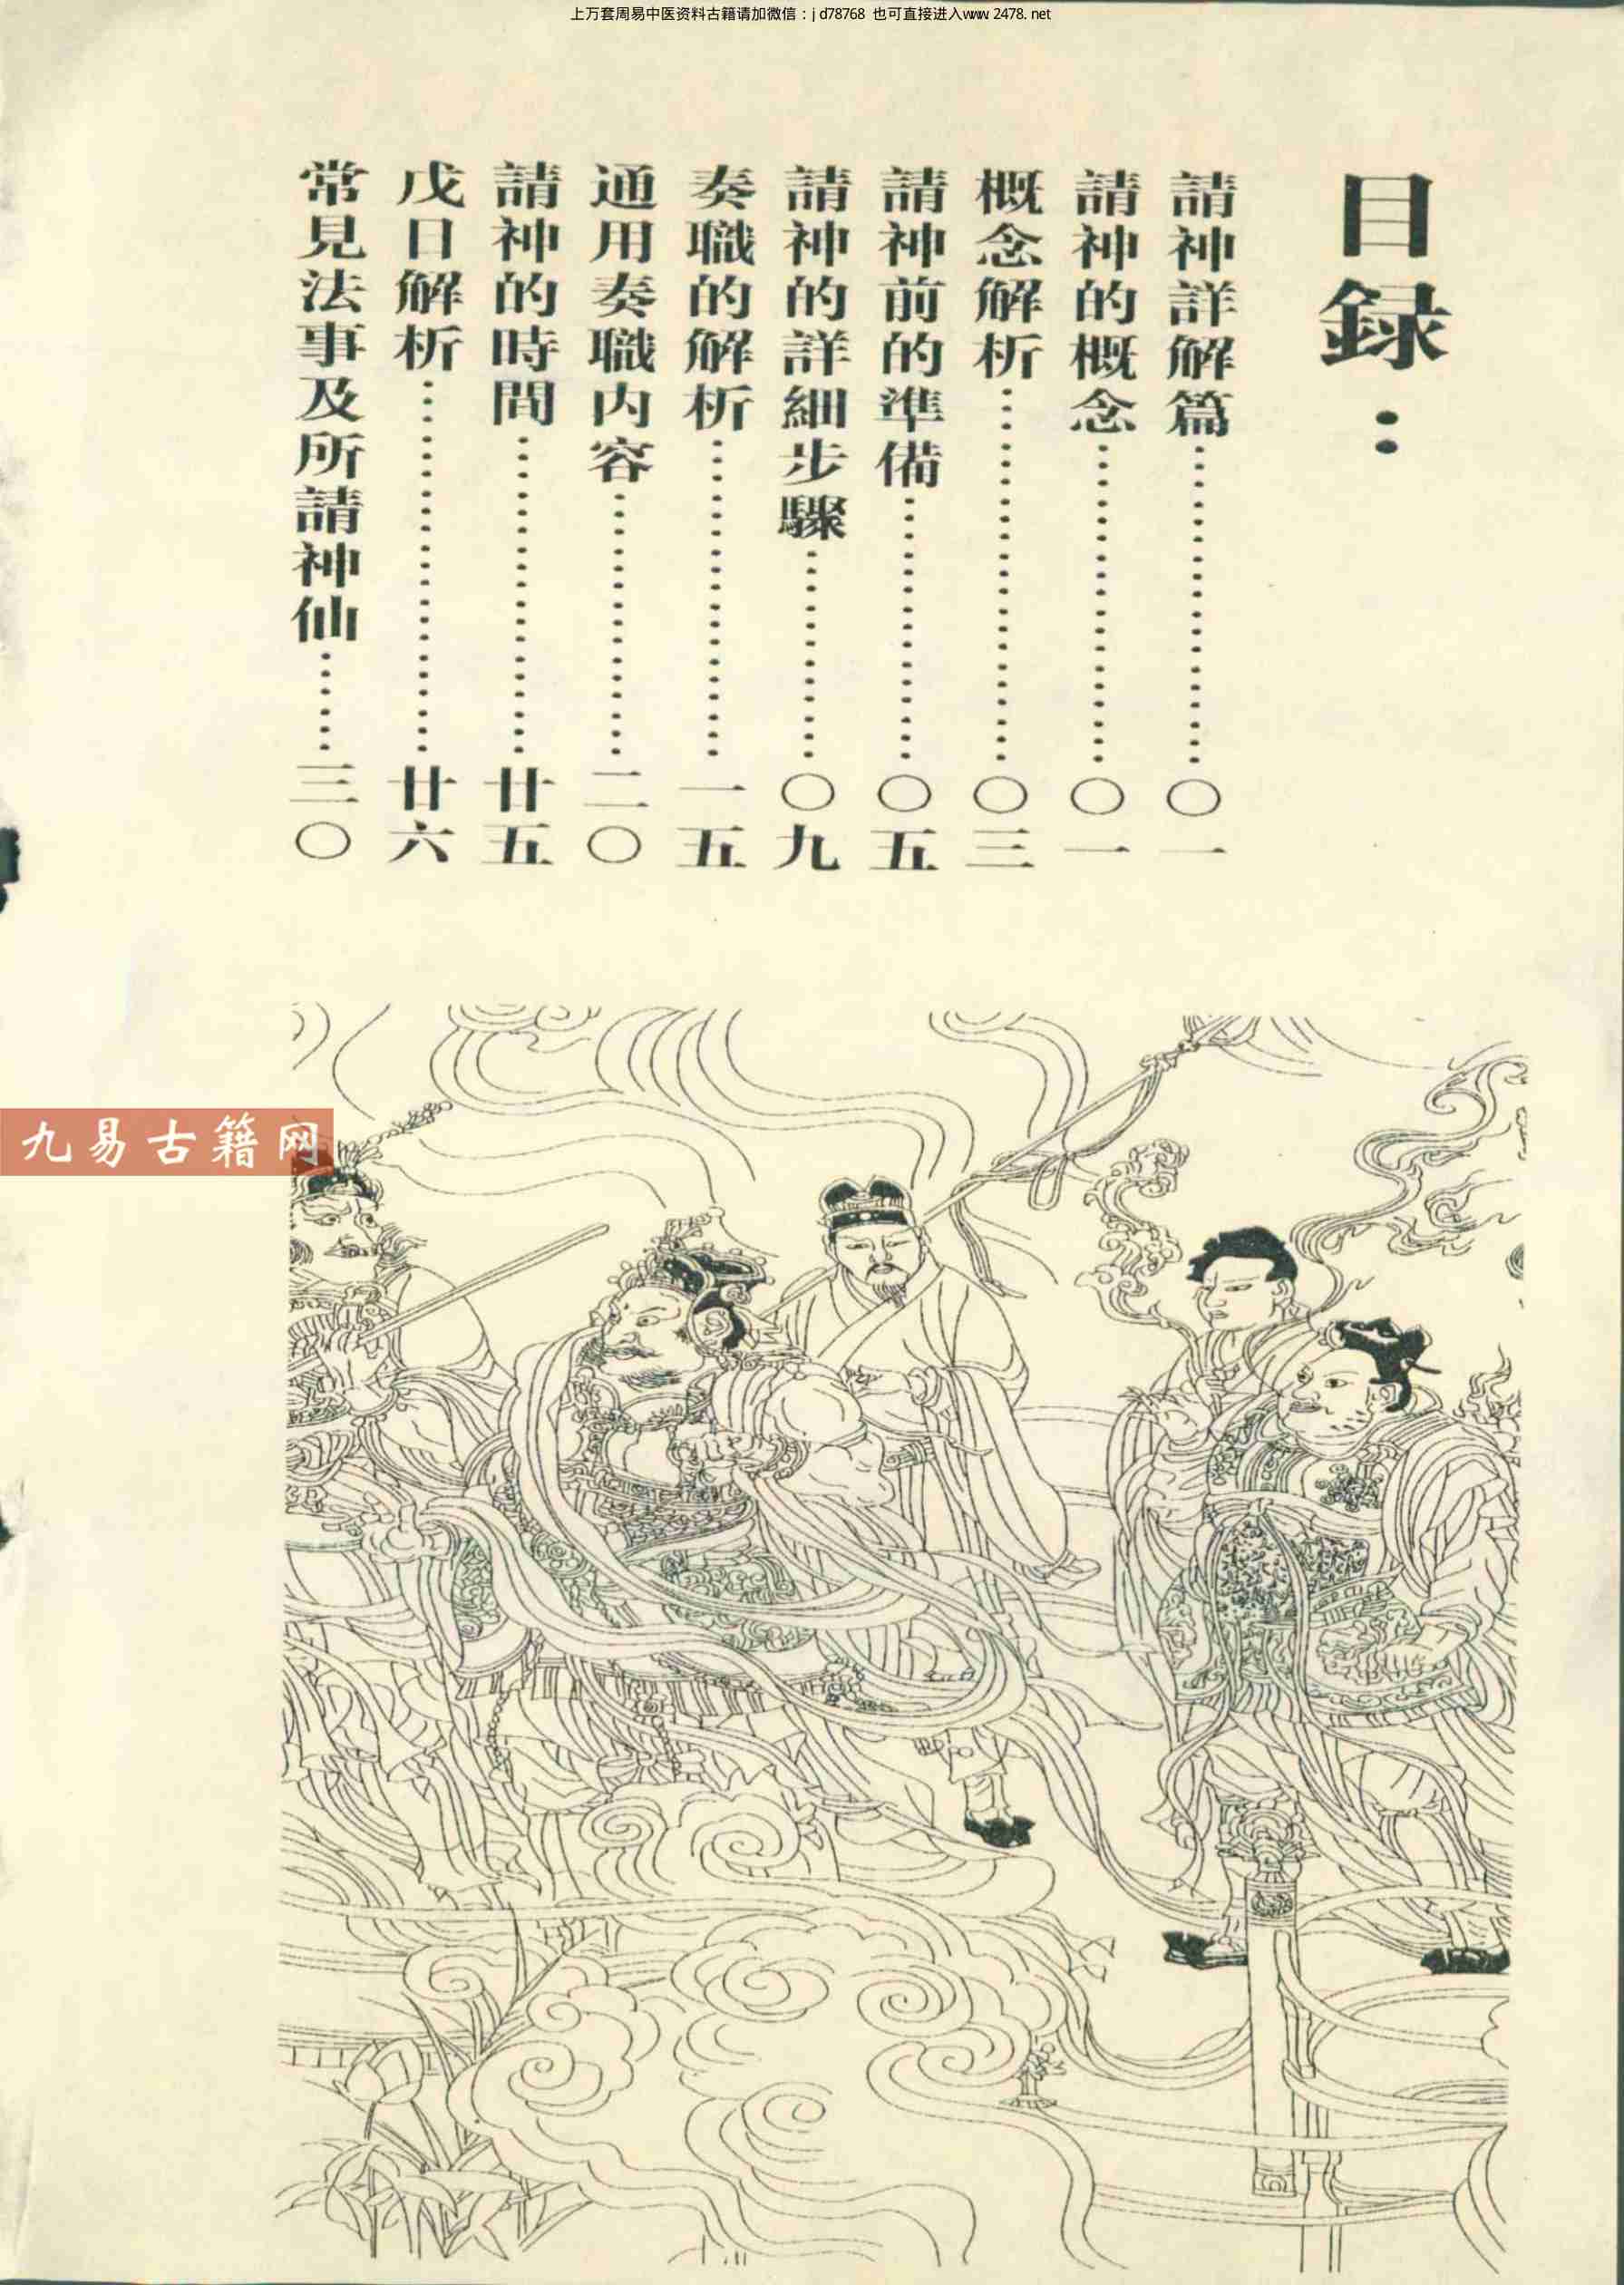 上万套周易中医资料古籍请加微信：jd78768 也可直接进入www.2478.net
目録：
請神詳解篇……………………〇一
請神的概念……………………〇一
概念解析……………………〇三
請神前的準備……………………〇五
請神的詳細步驟……………………〇九
奏職的解析……………………一五
通用奏職内容……………………二〇
請神的時間……………………廿五
戊日解析……………………廿六
常見法事及所請神仙…………三〇
九易古籍网